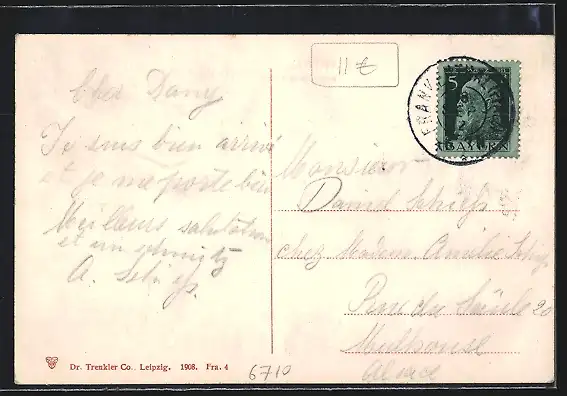 Cher Dany
Je suis bien arrivé
et je me porte bien
Meilleurs salutations
et un schmutz
A. Schieß.
11 €
5
BAYERN
FRANK
Monsieur
Daniel Schieß
chez Madame Amélie Schieß
Rue du 20
Mulhouse
Alsace
Dr. Trenkler Co., Leipzig. 1908. Fra. 4
6710